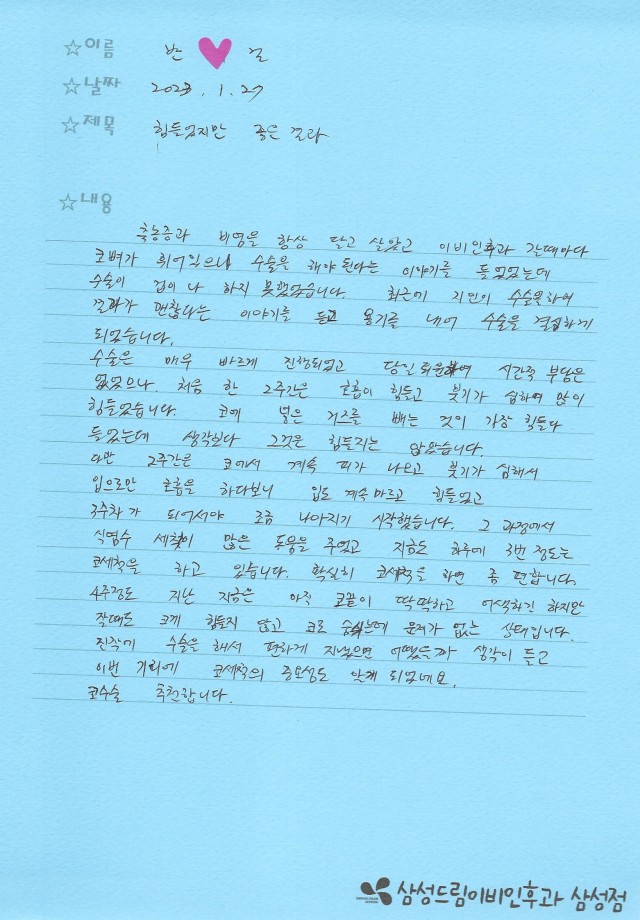 ☆이름 반 ♥ 길
☆날짜 2023. 1. 27
☆제목 힘들었지만 좋은 결과
☆내용
축농증과 비염을 항상 달고 살았고 이비인후과 갈때마다
코뼈가 휘어있으니 수술을 해야 된다는 이야기를 들었었는데
수술이 겁이 나 하지 못했었습니다. 최근에 지인이 수술을하여
결과가 괜찮다는 이야기를 듣고 용기를 내어 수술을 결심하게
되었습니다.
수술은 매우 빠르게 진행되었고 당일 퇴원하여 시간적 부담은
없었으나. 처음 한 2주간은 호흡이 힘들고 붓기가 심하여 많이
힘들었습니다. 코에 넣은 거즈를 빼는 것이 가장 힘들다
들었는데 생각보다 그것은 힘들지는 않았습니다.
다만 2주간은 코에서 계속 피가 나오고 붓기가 심해서
입으로만 호흡을 하다보니 입도 계속 마르고 힘들었고
3주차가 되어서야 조금 나아지기 시작했습니다. 그 과정에서
식염수 세척이 많은 도움을 주었고 지금도 하루에 3번 정도는
코세척을 하고 있습니다. 확실히 코세척을 하면 좀 편합니다.
4주정도 지난 지금은 아직 코끝이 딱딱하고 어색하긴 하지만
잘때도 크게 힘들지 않고 코로 숨쉬는데 문제가 없는 상태입니다.
진작에 수술을 해서 편하게 지냈으면 어땠을까 생각이 들고
이번 기회에 코세척의 중요성도 알게 되었네요.
코수술 추천합니다.
삼성드림이비인후과 삼성점